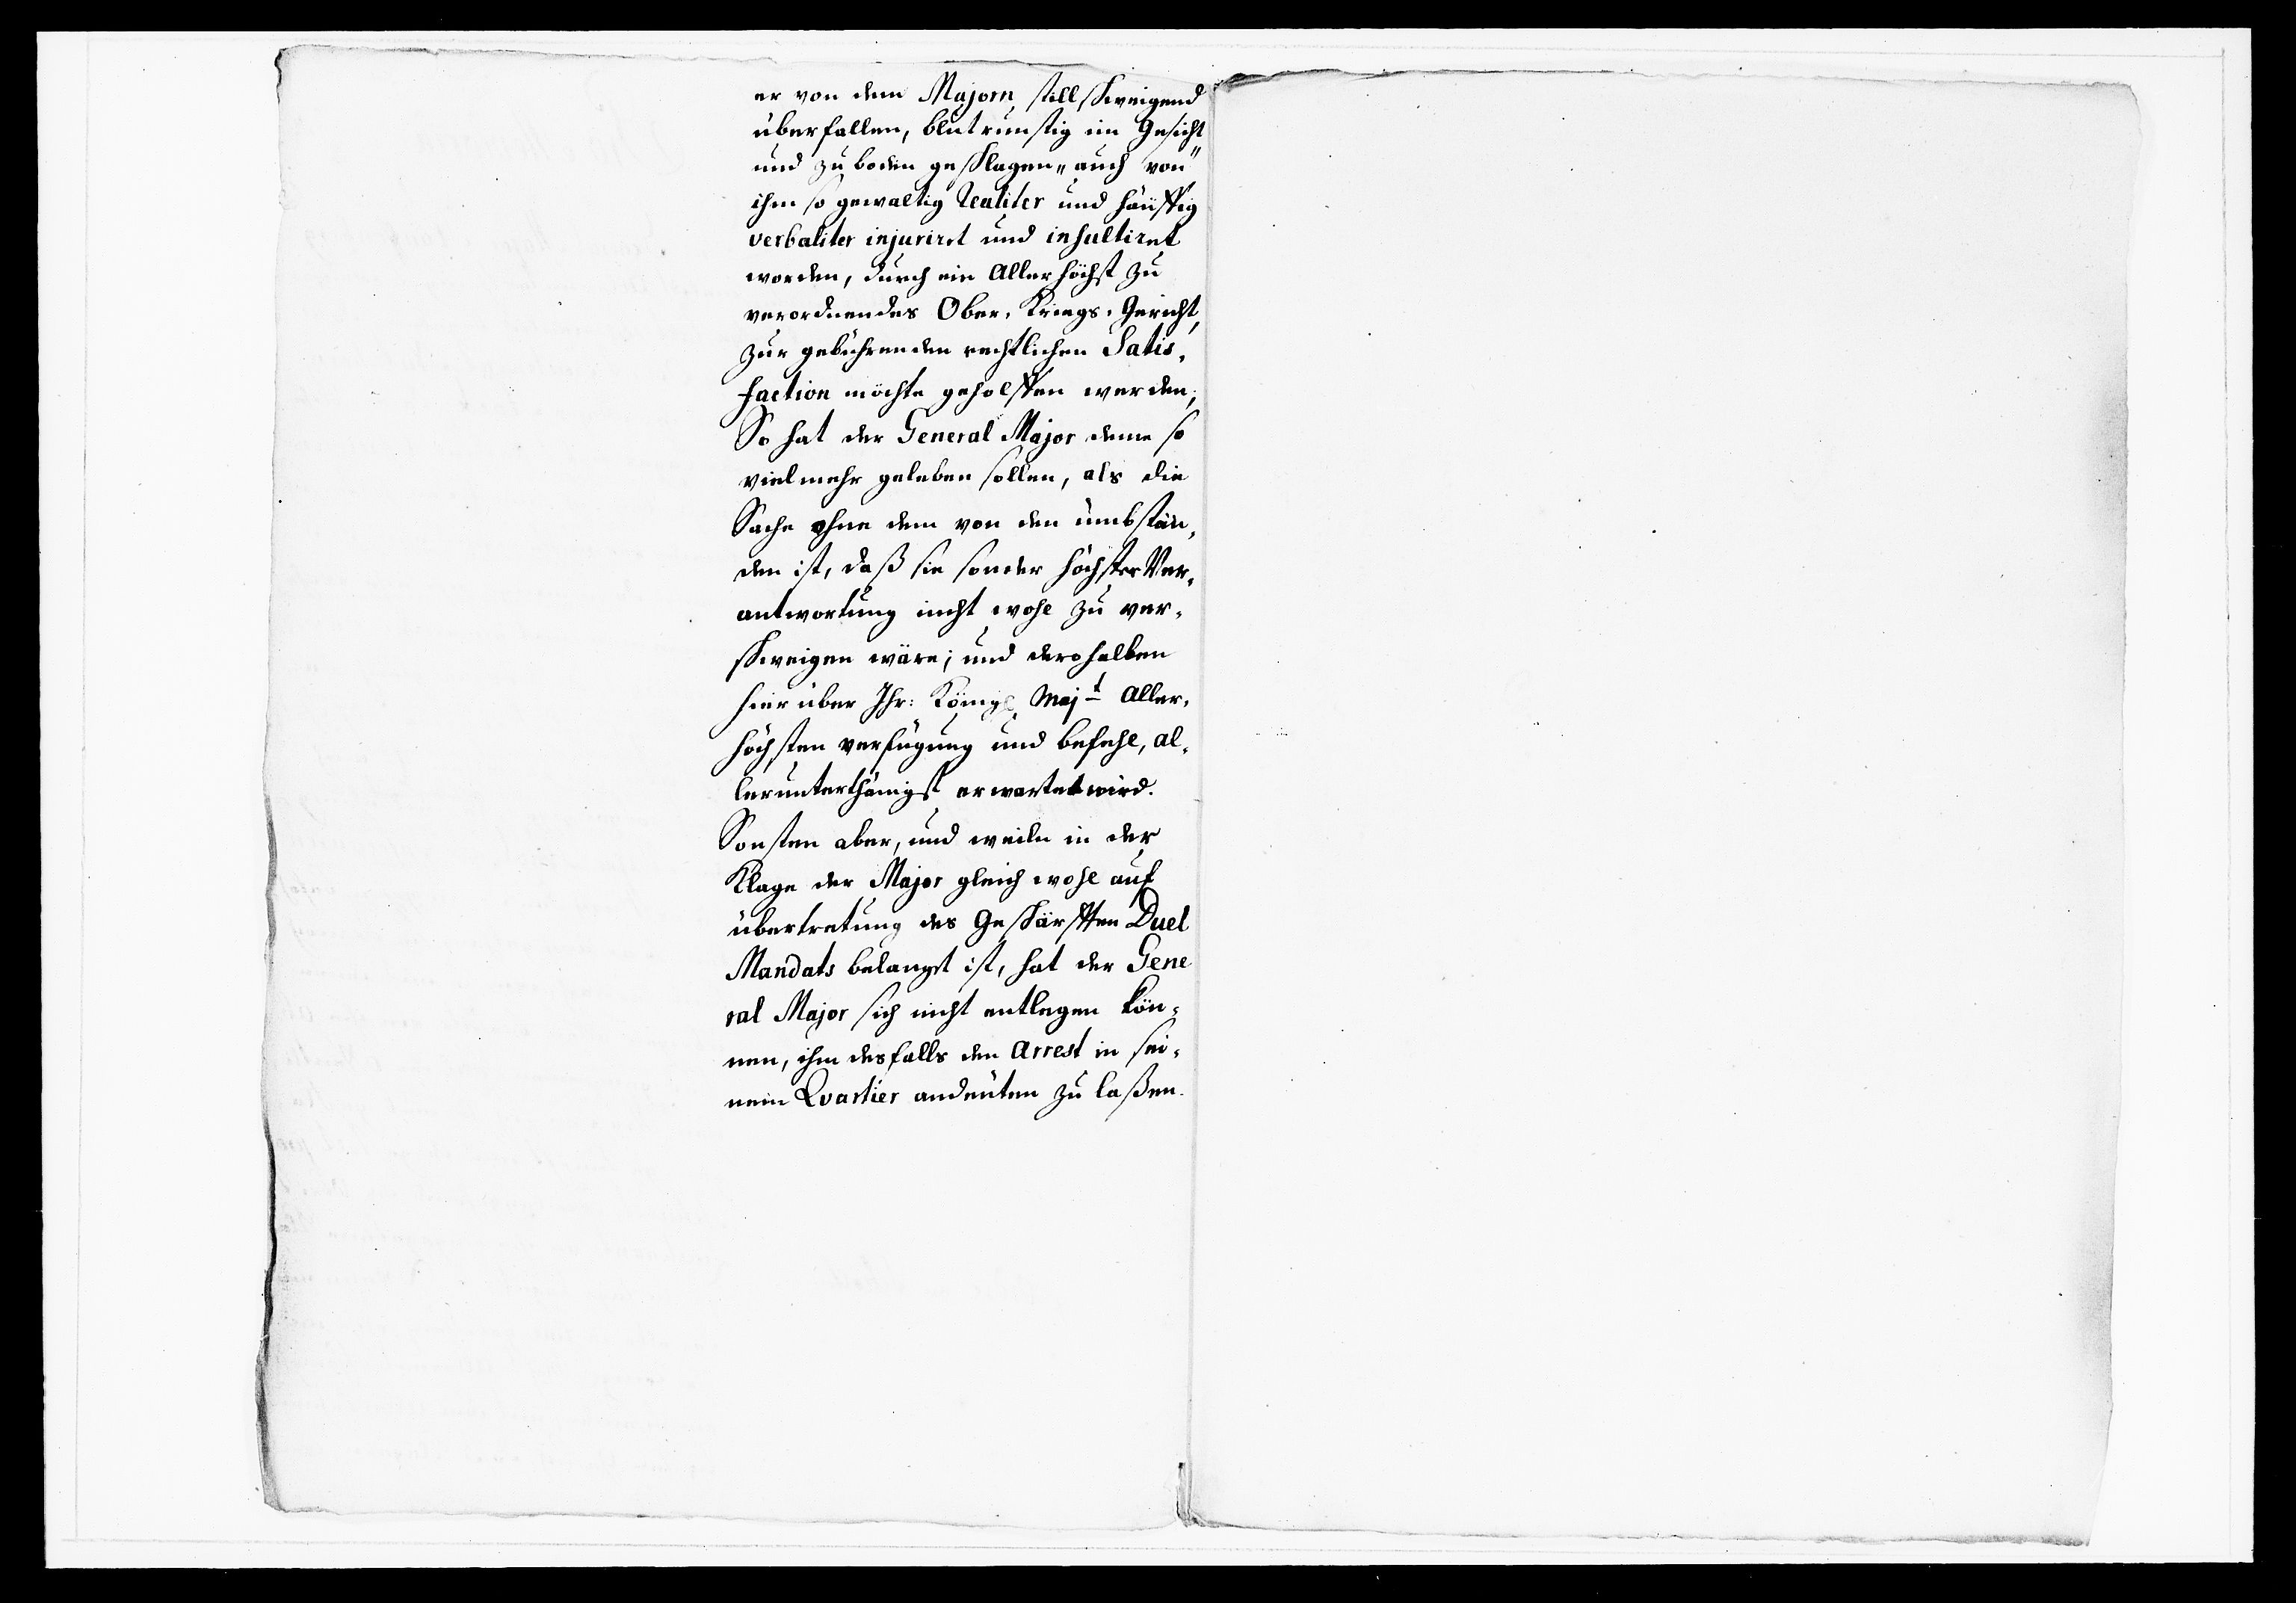 er von dem Majorn, stillschweigend
überfallen, blutrünstig im Gesicht
und zu boden geschlagen „ auch von"
ihm so gewaltig realiter und häuffig
verbaliter injuriret und insultiret
worden, durch ein Allerhöchst zu
verordnendes Ober-Kriegs-Gericht,
zur gebührenden rechtlichen Satis-
faction möchte geholffen werden;
So hat der General Major deme so
vielmehr geleben sollen, als die
Sache ohne dem von den umbstän-
den ist, daß sie sonder höchster Ver-
antwortung nicht wohl zu ver-
schweigen wäre; und derohalben
hierüber Ihr: Königl. Majt Aller-
höchsten verfügung und befehl, al-
lerunterthänigst erwartet wird.
Sonsten aber, und weiln in der
Klage der Major gleich wohl auf
übertretung des Geschärfften Duel
Mandats belanget ist, hat der Gene
ral Major sich nicht entlegen kön-
nen, ihm desfalls den Arrest in sei-
nem Qvartier andeuten zu laßen.